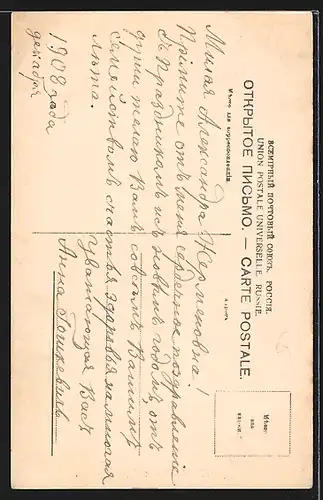 ВСЕМІРНЫЙ ПОЧТОВЫЙ СОЮЗЪ. РОССІЯ.
UNION POSTALE UNIVERSELLE. RUSSIE.
ОТКРЫТОЕ ПИСЬМО. — CARTE POSTALE.
Мѣсто для корреспонденціи
Адресъ.
Мѣсто
для
марки.
Милая Александра Херменовна!
Примите отъ меня сердечное поздравленіе
съ праздникомъ и съ новымъ годомъ, отъ
души желаю Вамъ совсѣмъ Вашимъ
семействомъ счастья здоровья на многая
лѣта.
Уважающая Васъ
Анна
1908 года
декабря